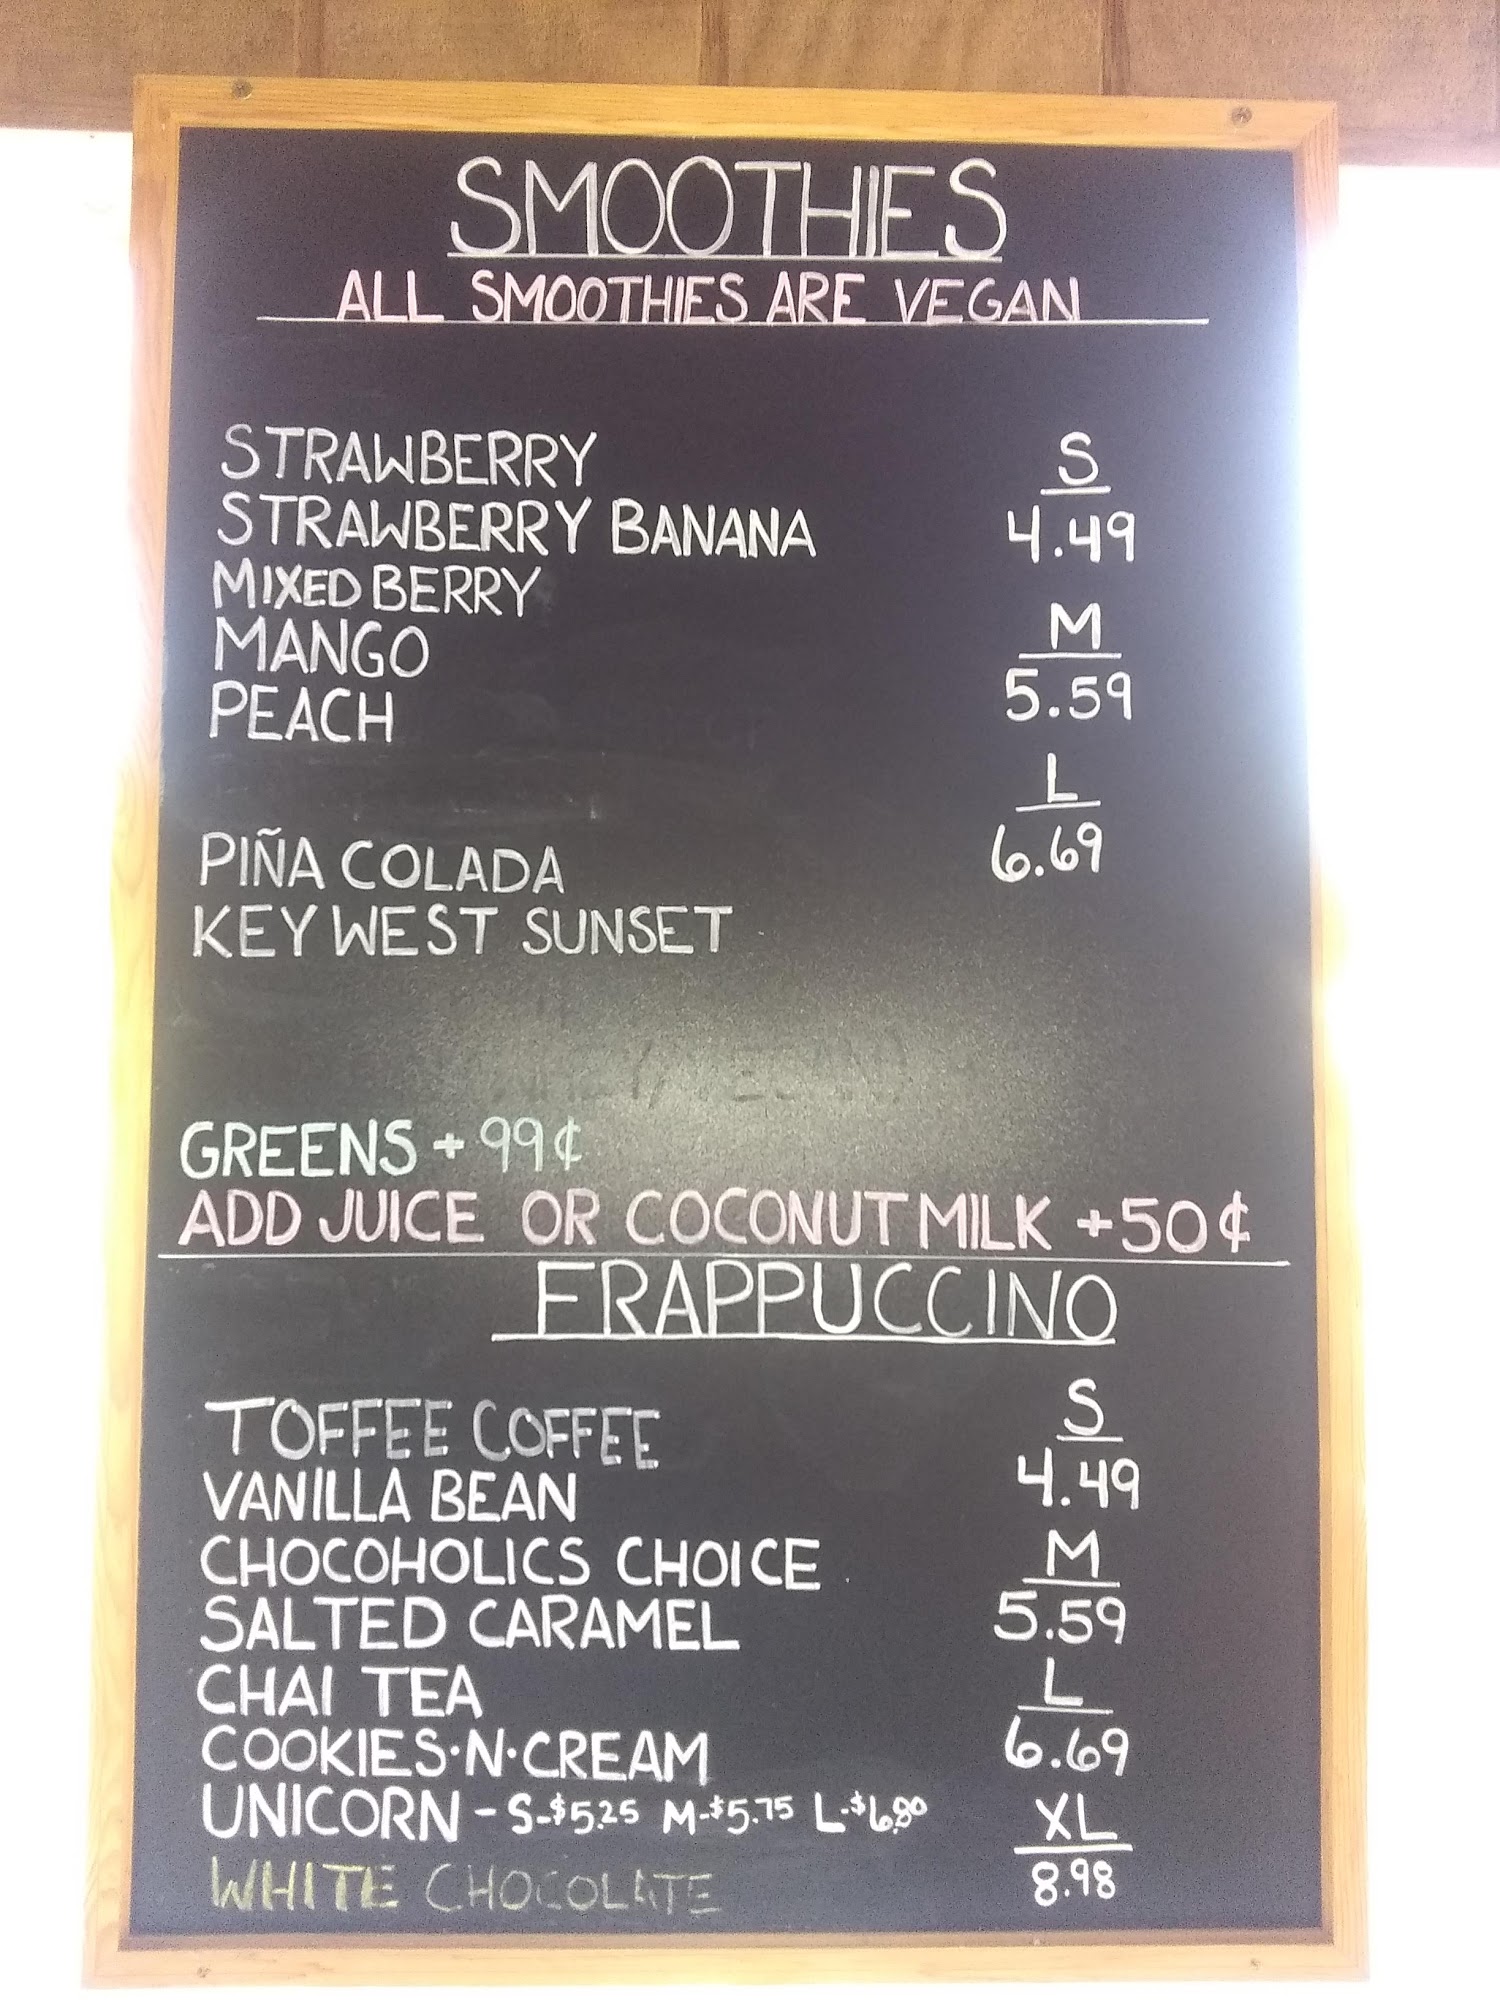 SMOOTHIES
ALL SMOOTHIES ARE VEGAN
STRAWBERRY
STRAWBERRY BANANA
MIXED BERRY
MANGO
PEACH
PIÑA COLADA
KEY WEST SUNSET
S
4.49
M
5.59
L
6.69
GREENS + 99¢
ADD JUICE OR COCONUT MILK +50¢
FRAPPUCCINO
TOFFEE COFFEE
VANILLA BEAN
CHOCOHOLICS CHOICE
SALTED CARAMEL
CHAI TEA
COOKIES·N·CREAM
UNICORN - S-$5.25 M-$5.75 L-$6.80
WHITE CHOCOLATE
S
4.49
M
5.59
L
6.69
XL
8.98